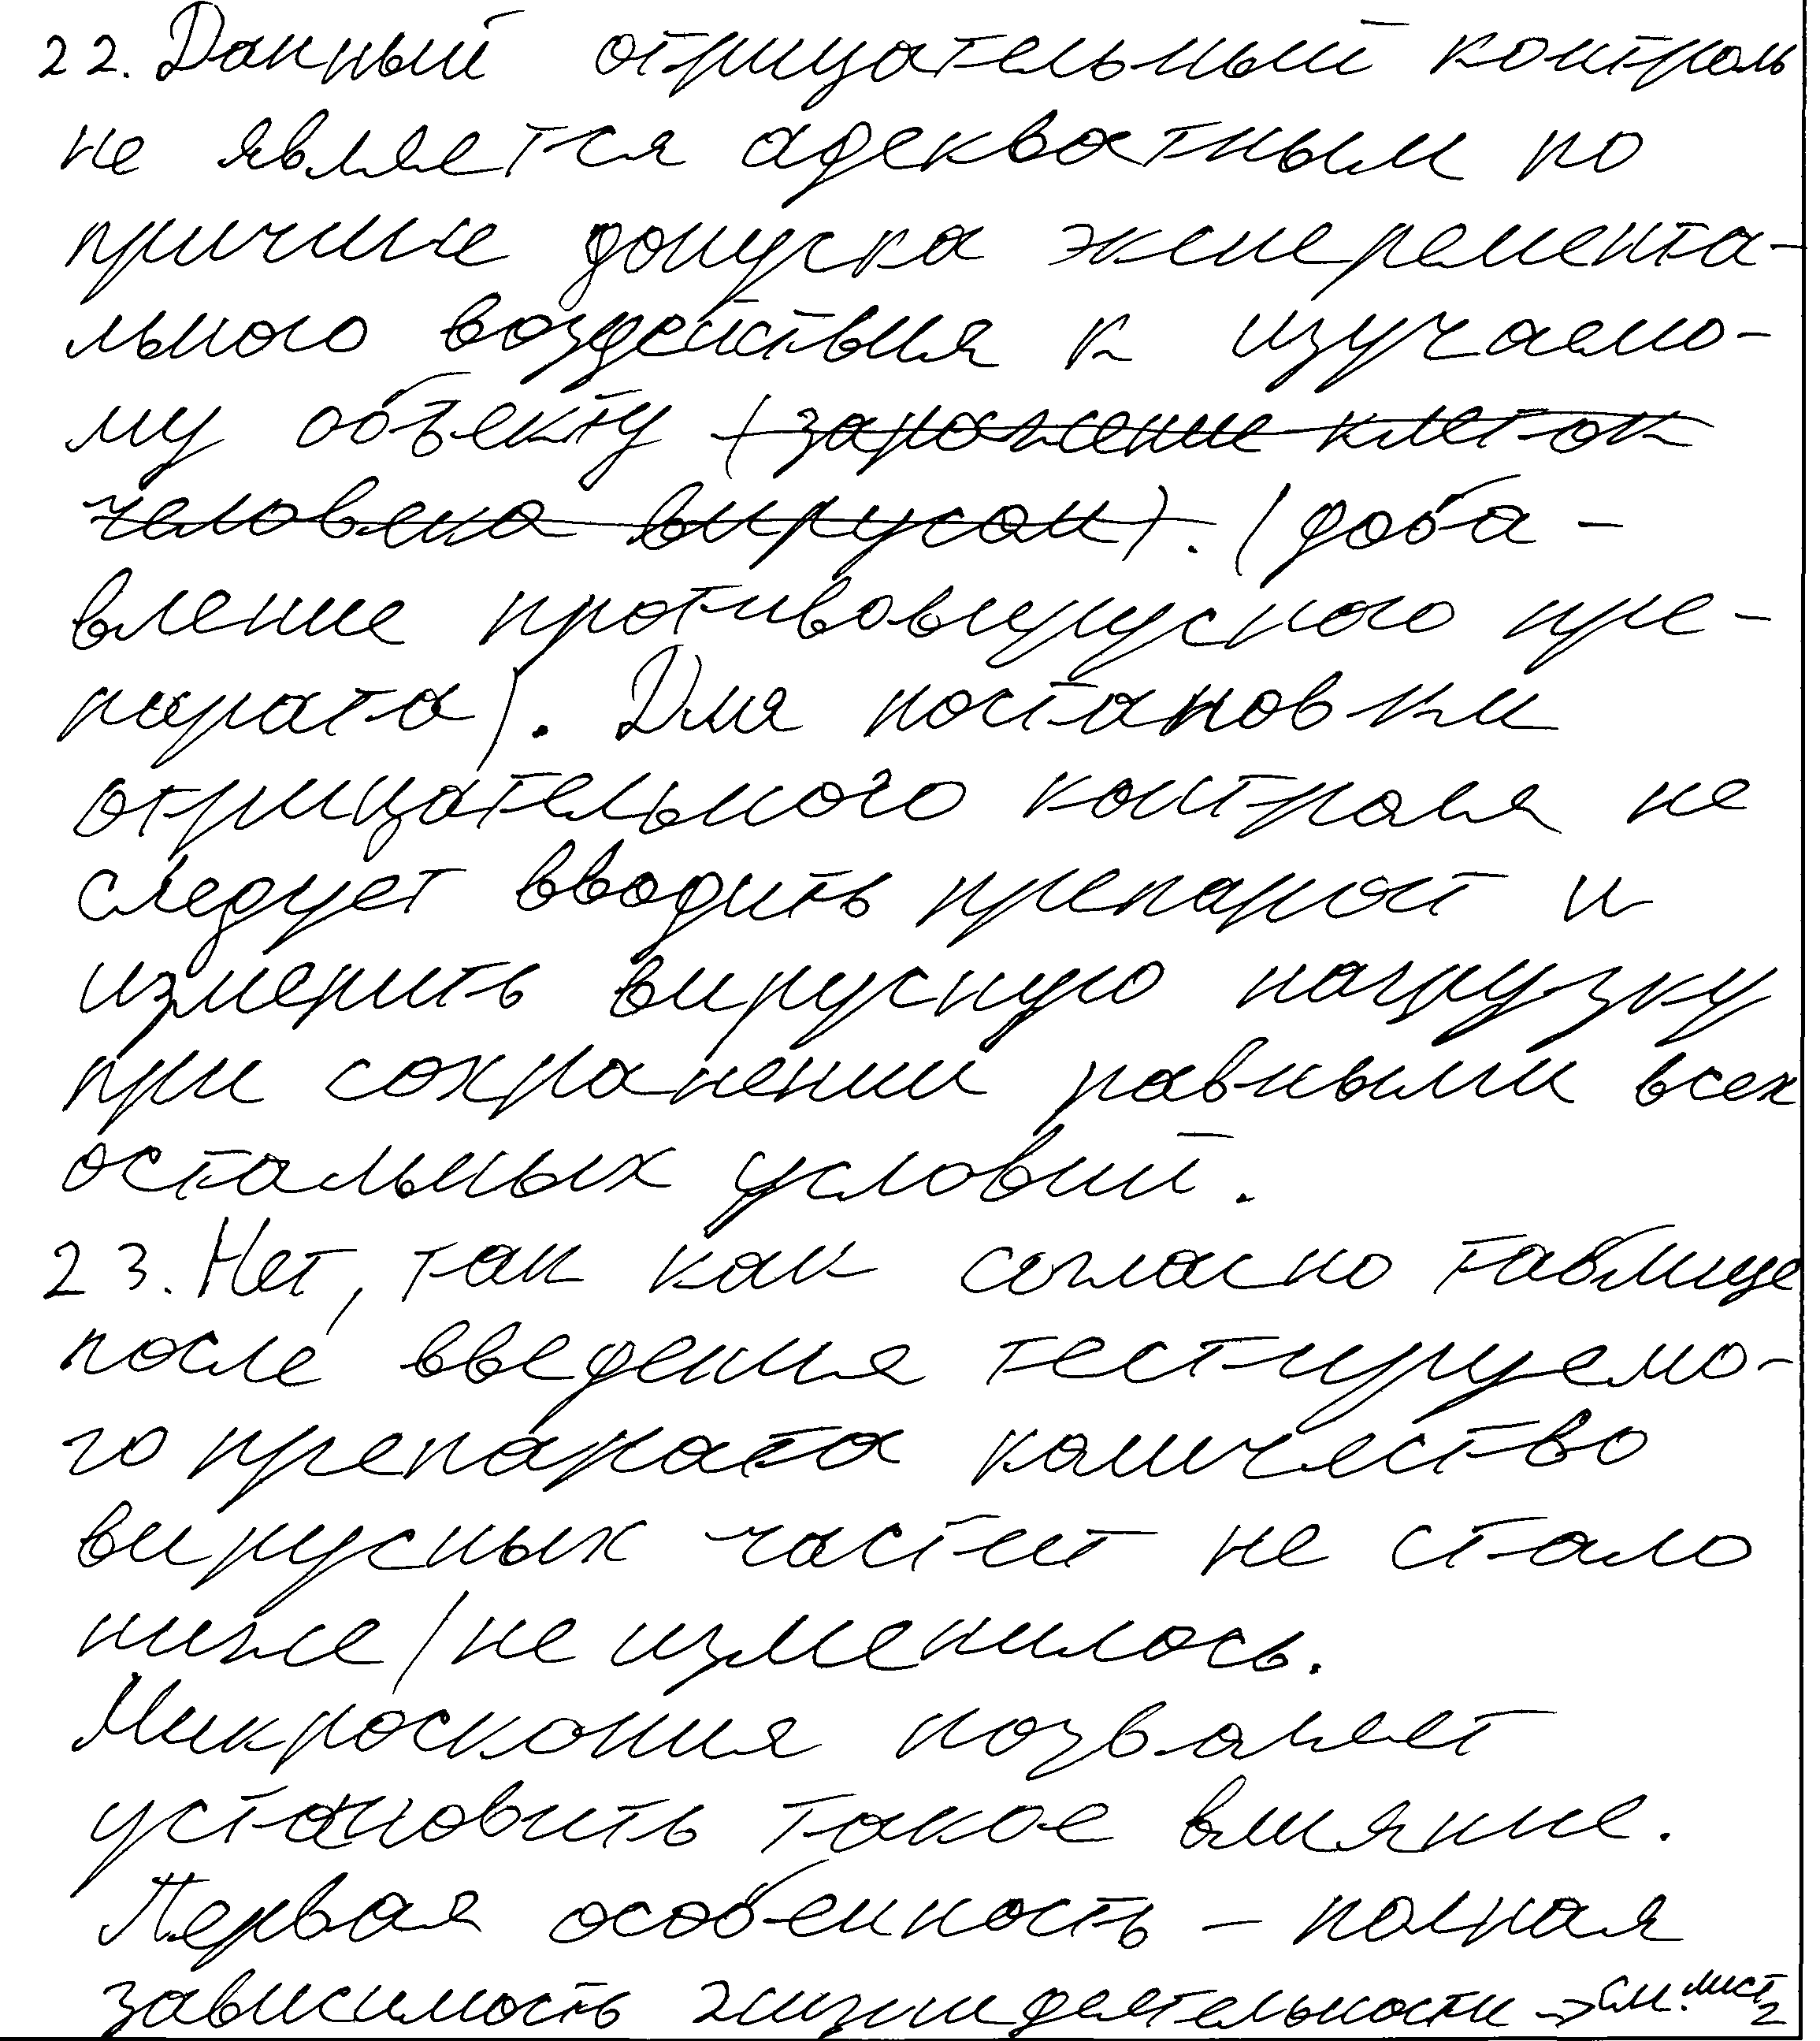 22. Данный отрицательный контроль
не является адекватным по
причине допуска эксперемента-
льного воздействия к изучаемо-
му объекту (заражение клеток
человека вирусом). (доба-
вление противовирусного пре-
парата). Для постановки
отрицательного контроля не
следует вводить препарат и
измерить вирусную нагрузку
при сохранении равными всех
остальных условий.
23. Нет, так как согласно таблице
после введения тестируемо-
го препарата количество
вирусных частит не стало
ниже / не изменилось.
Микроскопия позволяет
установить такое влияние.
Первая особенность – полная
зависимость жизнидеятельности → см. лист 2